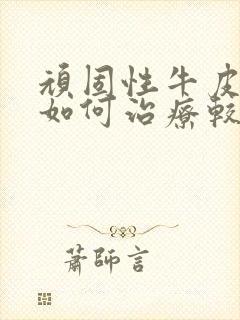 頑固性牛皮
如何治療較
蕭師言